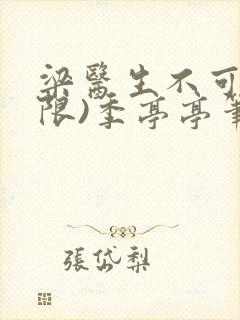 梁醫生不可
限)季亭亭筆
張岱梨